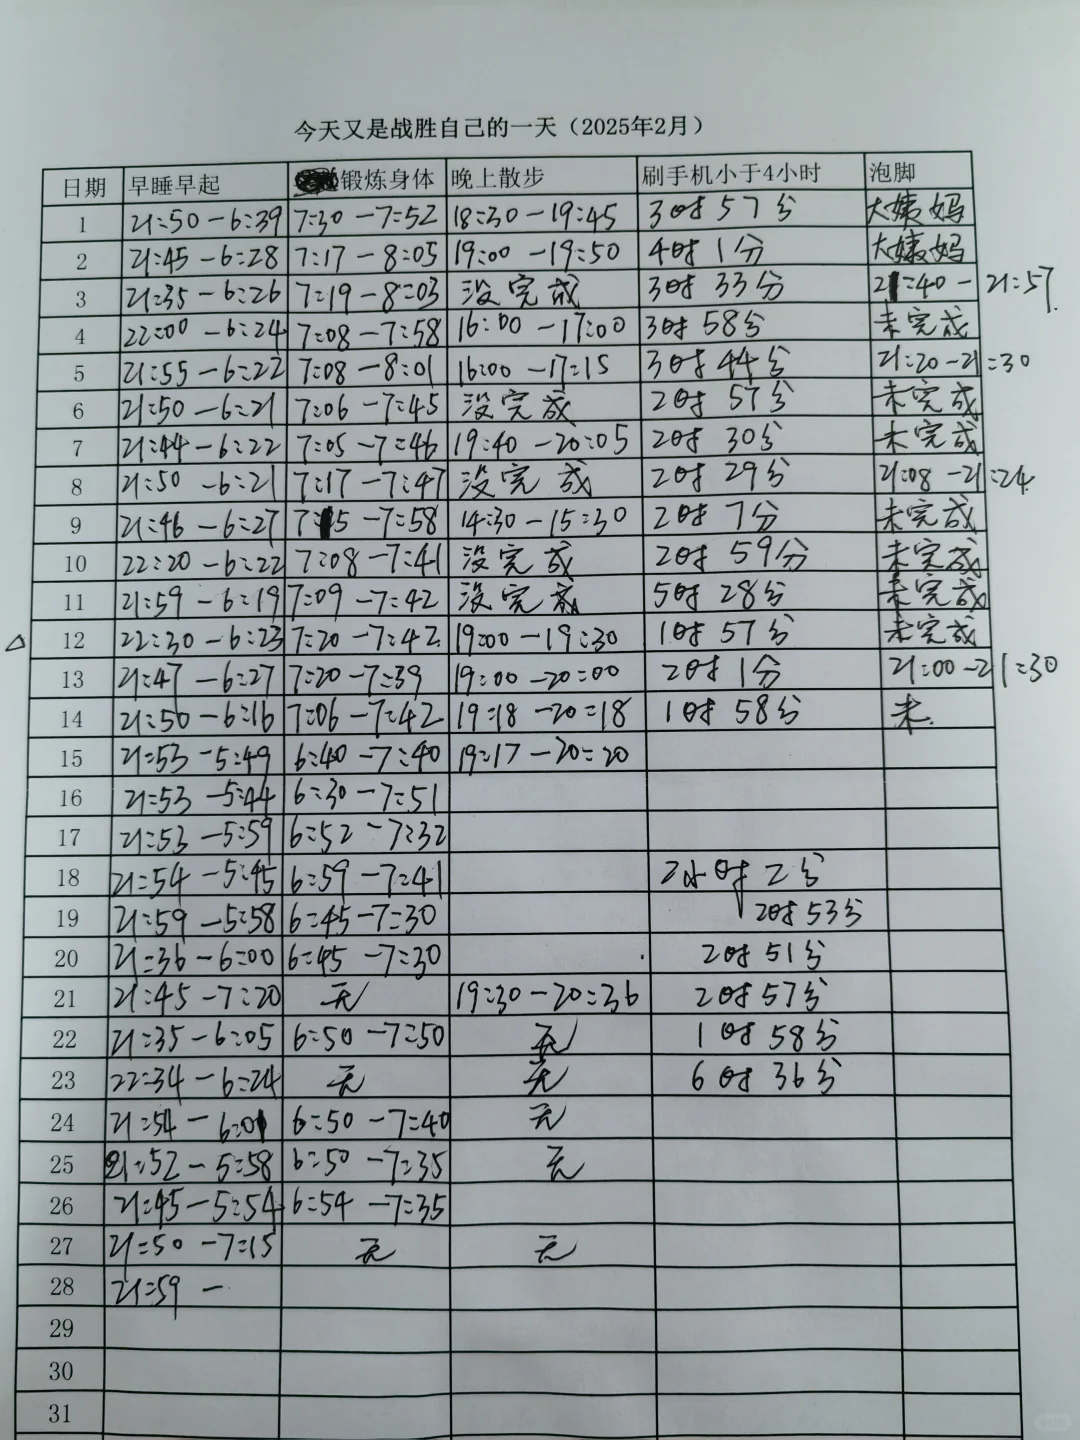 今天又是战胜自己的一天（2025年2月）
日期 早睡早起 锻炼身体 晚上散步 刷手机小于4小时 泡脚
1 21:50-6:39 7:30-7:52 18:30-19:45 3时57分 大姨妈
2 21:45-6:28 7:17-8:05 19:00-19:50 4时1分 大姨妈
3 21:35-6:26 7:19-8:03 没完成 3时33分 21:40-21:57
4 22:00-6:24 7:08-7:58 16:00-17:00 3时58分 未完成
5 21:55-6:22 7:08-8:01 16:00-17:15 3时44分 21:20-21:30
6 21:50-6:21 7:06-7:45 没完成 2时57分 未完成
7 21:44-6:22 7:05-7:46 19:40-20:05 2时30分 未完成
8 21:50-6:21 7:17-7:47 没完成 2时29分 21:08-21:24
9 21:46-6:27 7:15-7:58 14:30-15:30 2时7分 未完成
10 22:20-6:22 7:08-7:41 没完成 2时59分 未完成
11 21:59-6:19 7:09-7:42 没完成 5时28分 未完成
△ 12 22:30-6:23 7:20-7:42 19:00-19:30 1时57分 未完成
13 21:47-6:27 7:20-7:39 19:00-20:00 2时1分 21:00-21:30
14 21:50-6:16 7:06-7:42 19:18-20:18 1时58分 未.
15 21:53-5:49 6:40-7:40 19:17-20:20
16 21:53-5:44 6:30-7:51
17 21:53-5:59 6:52-7:32
18 21:54-5:45 6:59-7:41 2小时2分
19 21:59-5:58 6:45-7:30 2时53分
20 21:36-6:00 6:45-7:30 2时51分
21 21:45-7:20 无 19:30-20:36 2时57分
22 21:35-6:05 6:50-7:50 无 1时58分
23 22:34-6:24 无 无 6时36分
24 21:54-6:01 6:50-7:40 无
25 21:52-5:58 6:50-7:35 无
26 21:45-5:54 6:54-7:35
27 21:50-7:15 无 无
28 21:59-
29
30
31